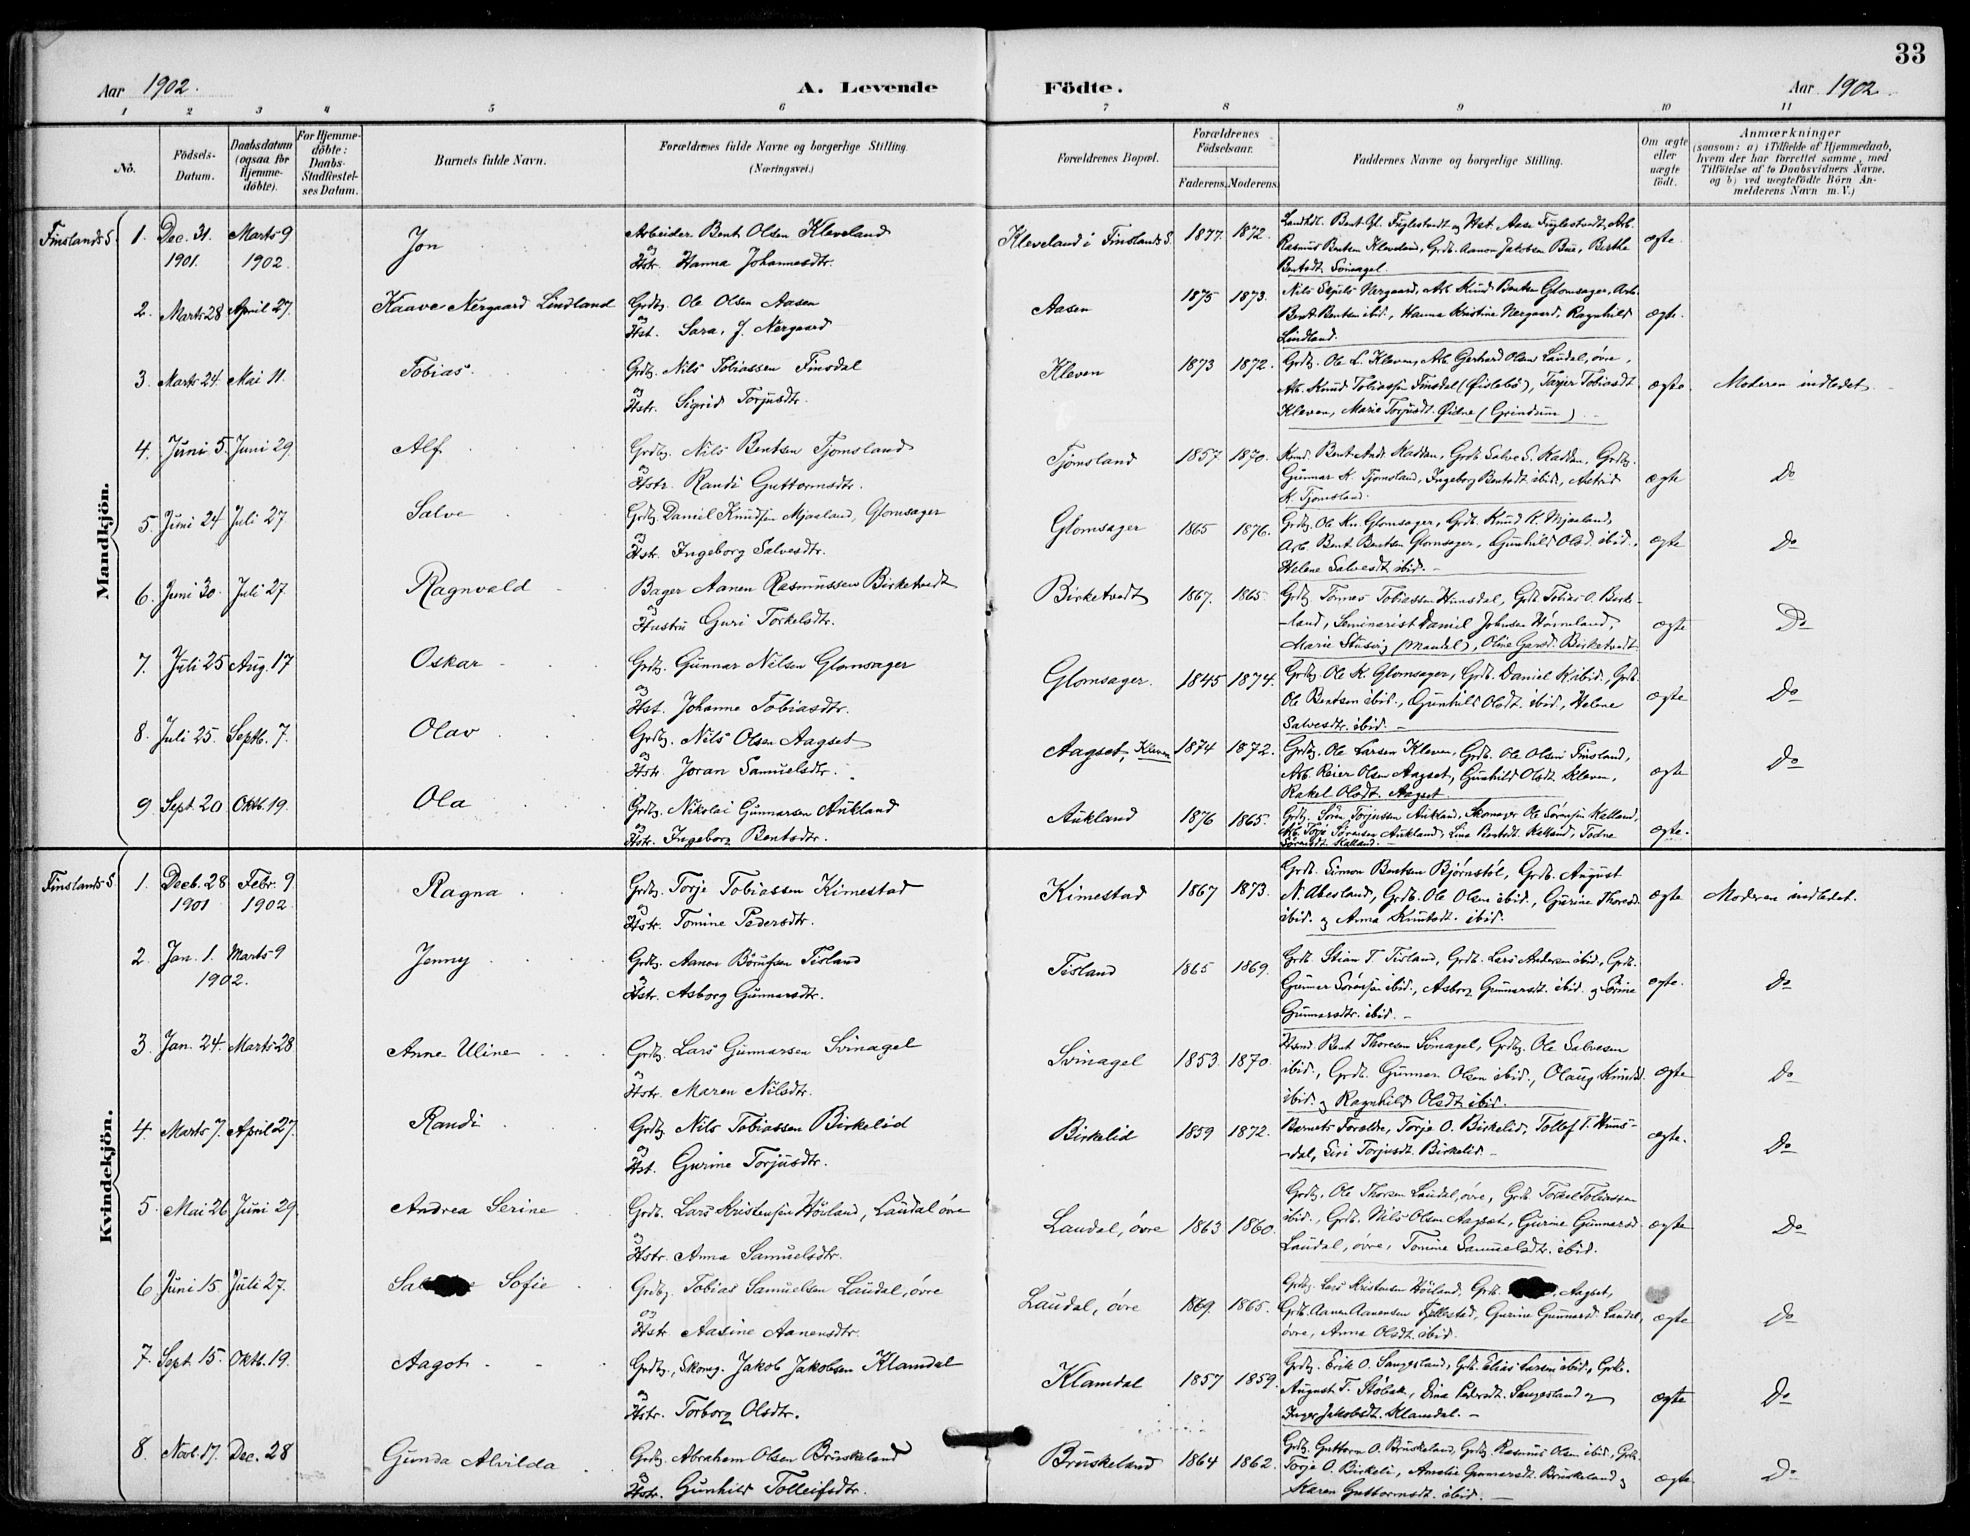 33
Aar 1902.
A. Levende
Födte.
Aar 1902
1 2 3 4 5 6 7 8 9 10 11
No.
Födsels-
Datum.
Daabsdatum
(ogsaa for
Hjemme-
döbte).
For Hjemme-
döbte:
Daabs-
Stadfæstel-
ses Datum.
Barnets fulde Navn.
Forældrenes fulde Navne og borgerlige Stilling
(Næringsvei.)
Forældrenes Bopæl.
Forældrenes
Födselsaar.
Faderens. Moderens.
Faddernes Navne og borgerlige Stilling.
Om ægte
eller
uægte
födt.
Anmærkninger
(saasom: a) i Tilfælde af Hjemmedaab,
hvem der har forrettet samme, med
Tilföielse af to Daabsvidners Navne,
og b) ved uægtefödte Börn An-
melderens Navn m. V.)
Mandkjön.
Finslands S. 1. Dec. 31. 1901. Marts 9 1902. Jon
Arbeider Bent Olsen Kleveland
og Hstr. Hanna Johannesdtr.
Kleveland i Finslands S. 1877. 1872.
Bent Ol. Fuglestvedt og Hst. Aase Fuglestvedt, Arb.
Rasmus Bentsen Kleveland, Grdb. Aanon Jakobsen Bue, Berthe
Bentsdt. Svinagel.
ægte.
2. Marts 28 April 27. Kaave Nergaard Lindland
Grdbg. Ole Olsen Aasen
og Hst. Sara J. Nergaard
Aasen 1875 1873.
Nils Nergaard, Arb. Knud Bentsen Glomsager, Arb.
Bent Bentsen ibid., Hanna Kristine Nergaard, Ragnhild
Lindland.
ægte.
3. Marts 24. Mai 11. Tobias.
Grdbg. Nils Tobiassen Finsdal
og Hstr. Sigrid Torjusdtr.
Kleven 1873 1872.
Grdbg. Ole L. Kleven, Arb. Gerhard Olsen Laudal, øvre,
Arb. Knud Tobiassen Finsdal (Øislebø), Tobiasdt.
Kleven, Marie Torjusdt. Øidne (Grindum).
ægte Moderen indledet.
4. Juni 5. Juni 29 Alf
Grdbg. Nils Bentsen Tjomsland
og Hstr. Randi Guttormsdtr.
Tjomsland 1857. 1870.
Bent Ands. Kadden, Grdb. Salve S. Kadden, Grdbg.
Gunnar K. Tjomsland, Ingeborg Bentsdt. ibid., Astrid
K. Tjomsland.
ægte Do
5. Juni 24 Juli 27 Salve
Grdbg. Daniel Knudsen Mjaaland, Glomsager
og Hstr. Ingeborg Salvesdtr.
Glomsager 1865 1876.
Grdbg. Ole Kn. Glomsager, Grdb. Knud K. Mjaaland,
Arb. Bent Bentsen Glomsager, Gunhild Olsd. ibid.,
Helene Salvesdt. ibid.
ægte Do
6. Juni 30. Juli 27. Ragnvald
Bager Aanen Rasmussen Birketvedt
og Hustru Guri Torkelsdtr.
Birketvedt 1867. 1865.
Grdbg. Tønnes Tobiassen Hunsdal, Grdb. Tobias O. Birke-
-land, Seminarist Daniel Johnsen Hørneland,
Marie (Mandal), Oline Birketvedt
ægte Do
7. Juli 25 Aug. 17 Oskar
Grdbg. Gunnar Nilsen Glomsager
og Hst. Johanne Tobiasdtr.
Glomsager. 1845 1874.
Grdbg. Ole K. Glomsager, Grdb. Daniel K. ibid., Grdb.
Ole Bentsen ibid., Gunhild Olsdt. ibid., Helene
Salvesdtr. ibid.
ægte Do
8. Juli 25. Septb. 7. Olav
Grdbg. Nils Olsen Aagset
og Hstr. Joran Samuelsdtr.
Aagset, Kleven 1874 1872.
Grdbg. Ole Larsen Kleven, Grdb. Ole Olsen Finsland,
Arb. Reier Olsen Aagset, Gunhild Olsdt. Kleven,
Rakel Olsdt. Aagset
ægte Do
9 Sept. 20 Oktb. 19. Ola
Grdbg. Nikolai Gunnarsen Aukland
og Hstr. Ingeborg Bentsdtr.
Aukland 1876 1865.
Grdbg. Sören Torjussen Aukland, Skomager Ole Sørensen Kalland,
Arb. Torje Sørensen Aukland, Lina Bentsdt. Kalland, Todne
Sørensdt. Kalland.
ægte.
Kvindekjön.
Finslands S 1. Decb. 28 1901 Febr. 9. 1902 Ragna
Grdbg. Torje Tobiassen Kimestad
og Hstr. Tomine Pedersdtr.
Kimestad 1867 1873.
Grdb. Simon Bentsen Bjørnstøl, Grdb. August
N. Abesland, Grdb. Ole Olsen ibid., Gurine Thoresd.
ibid. og Anna Knutsdt. ibid.
ægte Moderen indledet.
2. Jan. 1. Marts 9 1902. Jenny
Grdbg. Aanen Tisland
og Hstr. Asborg Gunnarsdtr.
Tisland 1865 1869.
Grdb. Stian T. Tisland, Grdb. Lars Andersen ibid., Grdb.
Gunnar Sørensen ibid., Asborg Gunnarsdt. ibid. og Sørine
Gunnarsdtr. ibid.
ægte. Do
3. Jan. 24. Marts 28 Anne Uline
Grdbg. Lars Gunnarsen Svinagel
og Hstr. Maren Nilsdtr.
Svinagel 1853. 1870.
Bent Thoresen Svinagel, Grdbg. Ole Salvesen
ibid., Grdb. Gunnar Olsen ibid., Olaug Knudsd.
ibid. og Ragnhild Olsdt. ibid.
ægte Do
4. Marts 7. April 27. Randi
Grdbg. Nils Tobiassen Birkelid
og Hst. Gurine Torjusdtr.
Birkelid 1859 1872.
Barnets Forældre, Torje O. Birkelid, Tollef T. Huns-
-dal, Siri Torjusdt. Birkelid.
ægte. Do
5. Mai 26 Juni 29. Andrea Serine
Grdb. Lars Kristensen Hörland, Laudal øvre
og Hstr. Anna Samuelsdtr.
Laudal, øvre 1863 1860.
Grdbg. Ole Thorsen Laudal, øvre, Grdb. Torkel Tobiassen
ibid., Grdb. Nils Olsen Aagset, Gurine Gunnarsd.
Laudal, øvre, Tomine Samuelsdtr. ibid.
ægte Do
6 Juni 15. Juli 27. Sofie
Grdbg. Tobias Samuelsen Laudal, øvre
og Hstr. Aasine Aanensdtr.
Laudal, øvre 1869. 1865.
Grdbg. Lars Kristensen Hörland, Grdb. Aagset,
Grdb. Aanen Aanensen Fjellestad, Gurine Gunnarsd. Laudal,
øvre, Anna Olsdt. ibid.
ægte Do
7. Sept. 15. Oktb. 19. Aagot
Grdbg., Skomg. Jakob Jakobsen Klamdal
og Hstr. Torborg Olsdtr.
Klamdal 1857 1859.
Grdbg. Erik O. Saugesland, Grdb. Elias Larsen ibid., Grdb.
August T. Støbak, Dina Pedersdt. Saugesland og
Inger Jakobsdt. Klamdal.
ægte Do
8. Novb. 17. Dec. 28 Gunda Alvilda
Grdbg. Abraham Olsen Bruskeland
og Hstr. Gunhild Tolleifsdtr.
Bruskeland 1864 1862.
Grdbg. Guttorm O. Bruskeland, Grdbg. Rasmus Olsen ibid., Grdb.
Torje O. Birkeli, Amalie Gunnarsdt. Bruskeland og
Karen Guttormsdt. ibid.
ægte Do